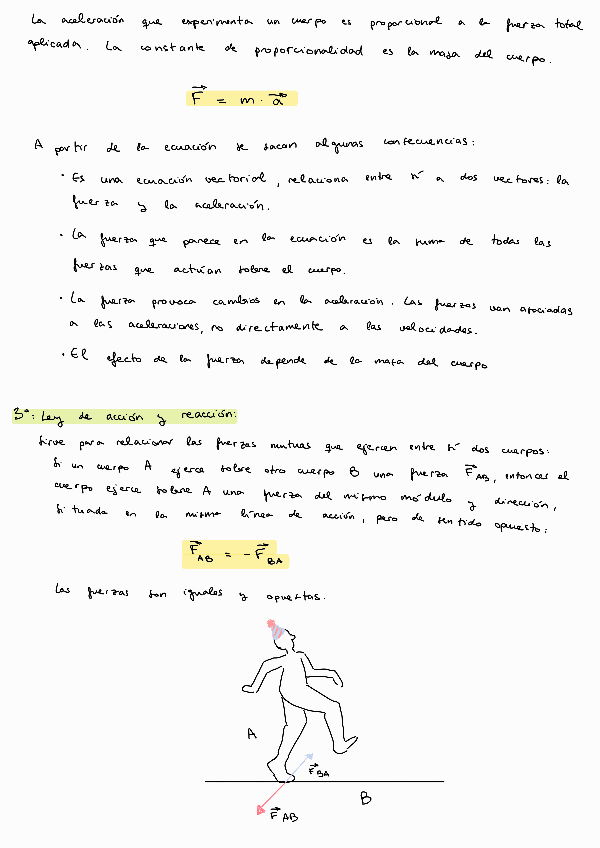 La aceleración que experimenta un cuerpo es proporcional a la fuerza total
aplicada. La constante de proporcionalidad es la masa del cuerpo.
F⃗ = m · a⃗
A partir de la ecuación se sacan algunas consecuencias:
· Es una ecuación vectorial, relaciona entre sí a dos vectores: la
fuerza y la aceleración.
· La fuerza que parece en la ecuación es la suma de todas las
fuerzas que actúan sobre el cuerpo.
· La fuerza provoca cambios en la aceleración. Las fuerzas van asociadas
a las aceleraciones, no directamente a las velocidades.
· El efecto de la fuerza depende de la masa del cuerpo
3ª: Ley de acción y reacción:
Sirve para relacionar las fuerzas mutuas que ejercen entre sí dos cuerpos:
Si un cuerpo A ejerce sobre otro cuerpo B una fuerza F⃗AB, entonces el
cuerpo ejerce sobre A una fuerza del mismo módulo y dirección,
situada en la misma línea de acción, pero de sentido opuesto:
F⃗AB = -F⃗BA
Las fuerzas son iguales y opuestas.
A
F⃗BA
B
F⃗AB